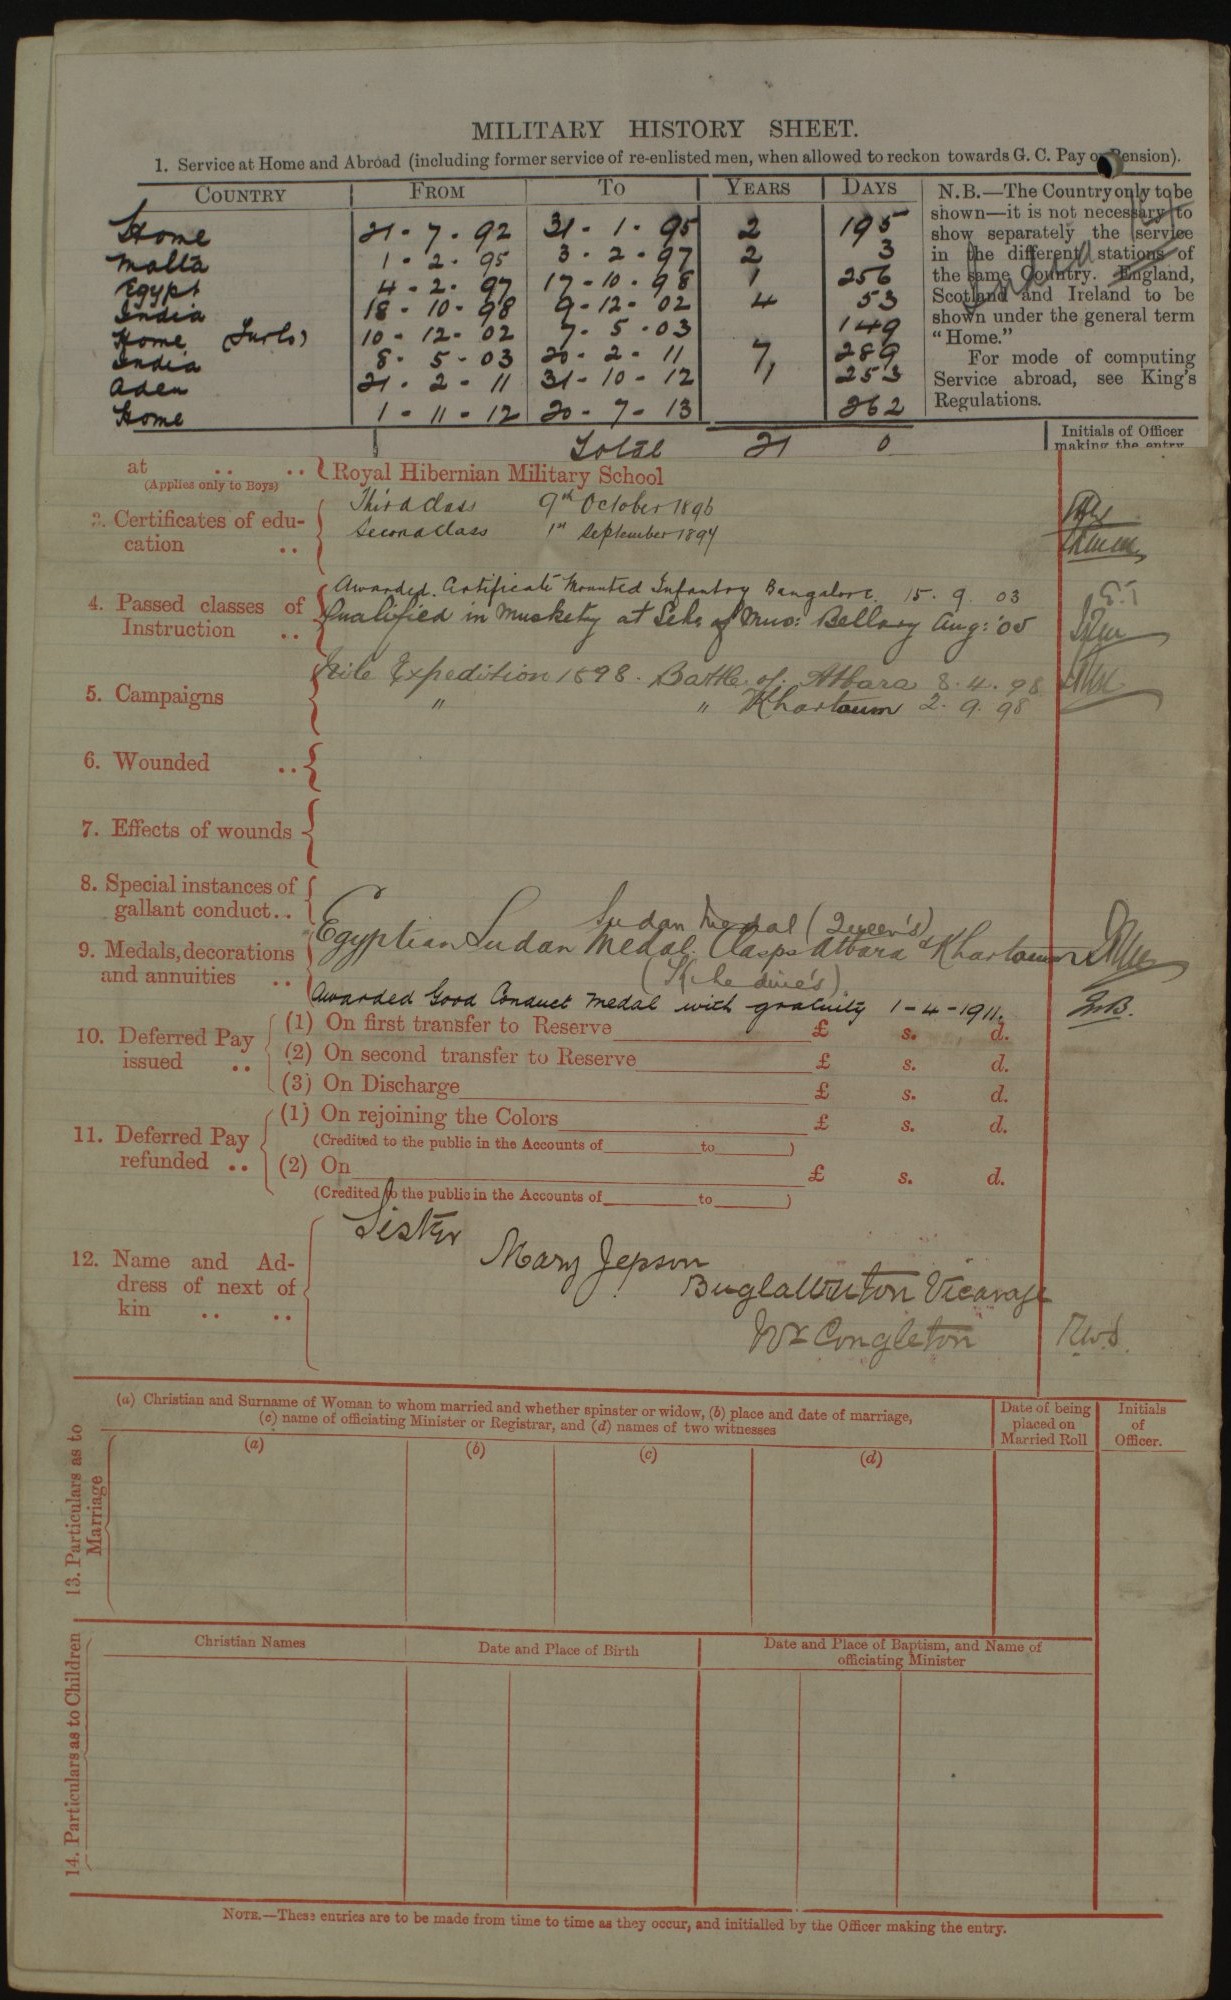 MILITARY HISTORY SHEET.
1. Service at Home and Abroad (including former service of re-enlisted men, when allowed to reckon towards G. C. Pay or Pension).
COUNTRY FROM TO YEARS DAYS
Home 21 - 7 - 92 31 - 1 - 95 2 195
Malta 1 - 2 - 95 3 - 2 - 97 2 3
Egypt 4 - 2 - 97 17 - 10 - 98 1 256
India 18 - 10 - 98 9 - 12 - 02 4 53
Home (Furlo) 10 - 12 - 02 7 - 5 - 03 149
India 8 - 5 - 03 20 - 2 - 11 7 289
Aden 21 - 2 - 11 31 - 10 - 12 1 253
Home 1 - 11 - 12 20 - 7 - 13 262
Total 21 0
N.B.—The Country only to be
shown—it is not necessary to
show separately the service
in the different stations of
the same Country. England,
Scotland and Ireland to be
shown under the general term
"Home."
For mode of computing
Service abroad, see King's
Regulations.
Initials of Officer
making the entry
at .. .. Royal Hibernian Military School
(Applies only to Boys)
3. Certificates of edu-
cation ..
Third Class 9th October 1896
Second Class 1st September 1897
4. Passed classes of
Instruction ..
Awarded. Certificate Mounted Infantry Bangalore. 15. 9. 03
Qualified in Musketry at Scho of Mus: Bellary Aug: '05
5. Campaigns
Nile Expedition 1898. Battle of Atbara 8. 4. 98
" " Khartoum 2. 9. 98
6. Wounded ..
7. Effects of wounds
8. Special instances of
gallant conduct..
9. Medals, decorations
and annuities ..
Sudan Medal (Queen's)
Egyptian Sudan Medal. Clasps Atbara & Khartoum
(Khedive's)
Awarded Good Conduct medal with gratuity 1-4-1911. JnB.
10. Deferred Pay
issued ..
(1) On first transfer to Reserve £ s. d.
(2) On second transfer to Reserve £ s. d.
(3) On Discharge £ s. d.
11. Deferred Pay
refunded ..
(1) On rejoining the Colors £ s. d.
(Credited to the public in the Accounts of to )
(2) On £ s. d.
(Credited to the public in the Accounts of to )
12. Name and Ad-
dress of next of
kin .. ..
Sister
Mary Jepson
Buglawton Vicarage
Nr Congleton R.W.S.
13. Particulars as to
Marriage
(a) Christian and Surname of Woman to whom married and whether spinster or widow, (b) place and date of marriage,
(c) name of officiating Minister or Registrar, and (d) names of two witnesses
Date of being
placed on
Married Roll
Initials
of
Officer.
(a) (b) (c) (d)
14. Particulars as to Children
Christian Names Date and Place of Birth Date and Place of Baptism, and Name of
officiating Minister
NOTE.—These entries are to be made from time to time as they occur, and initialled by the Officer making the entry.